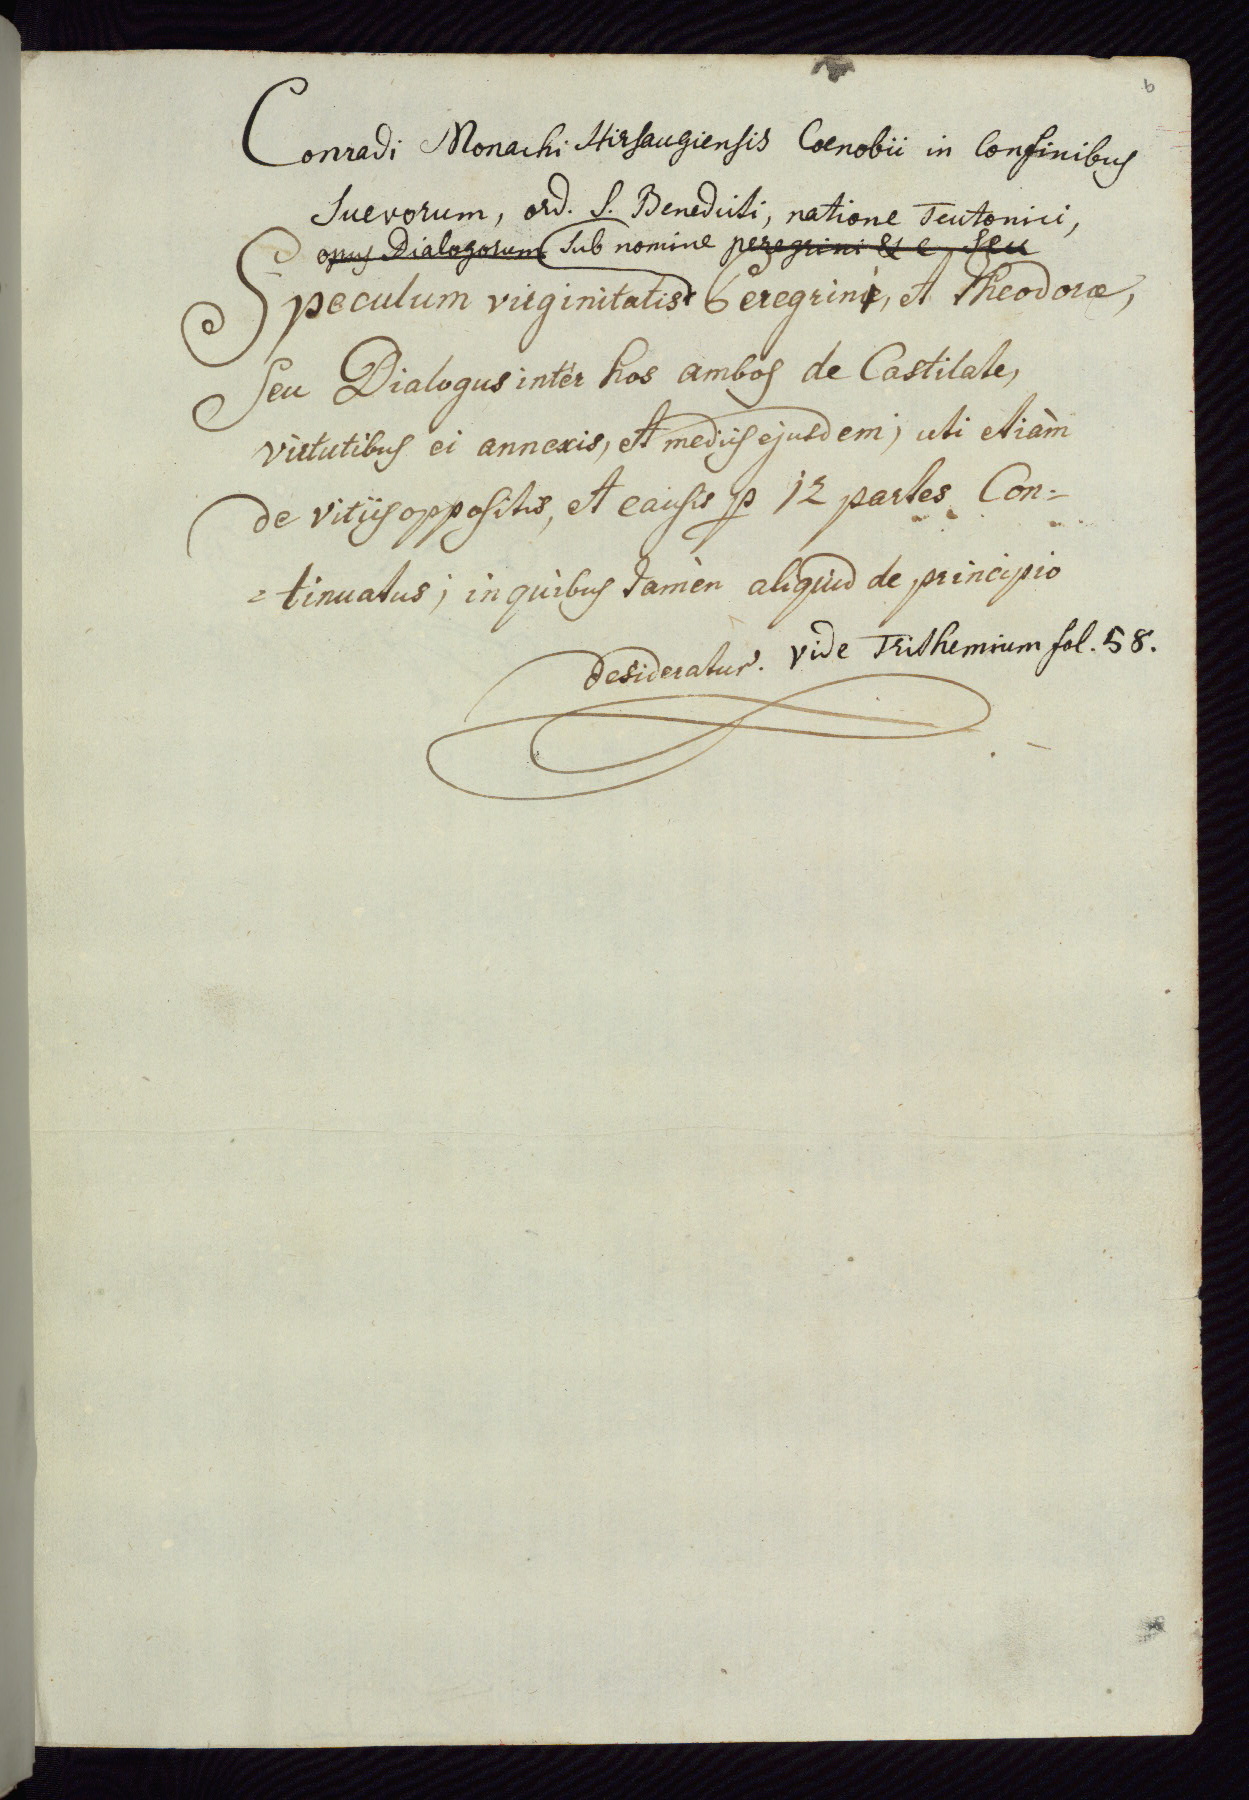 6
Conradi Monachi Hirsaugiensis Coenobii in Confinibus
Suevorum, ord. S. Benedicti, natione Teutonici,
opus Dialogorum sub nomine peregrini & c, seu
Speculum virginitatis Peregrini, et Theodoræ,
seu Dialogus inter hos ambos de Castitate,
virtutibus ei annexis, et mediis ejusdem; uti etiàm
de vitiis oppositis, et causis p 12 partes Con=
=tinuatus; in quibus tamèn aliquid de principio
desideratur. vide Trithemium fol. 58.